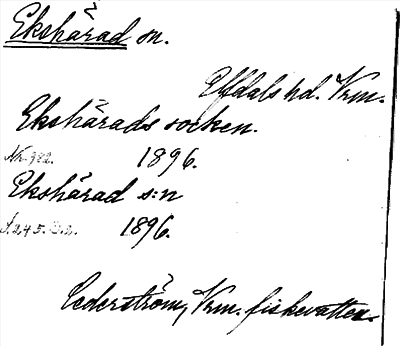 Ekshärad sn.
Elfdals hd. Vrm.
Ekshärads socken.
Nr. 382. 1896.
Ekshärad s:n
s. 245. 1896.
Cederström, Vrm. fiskevatten.